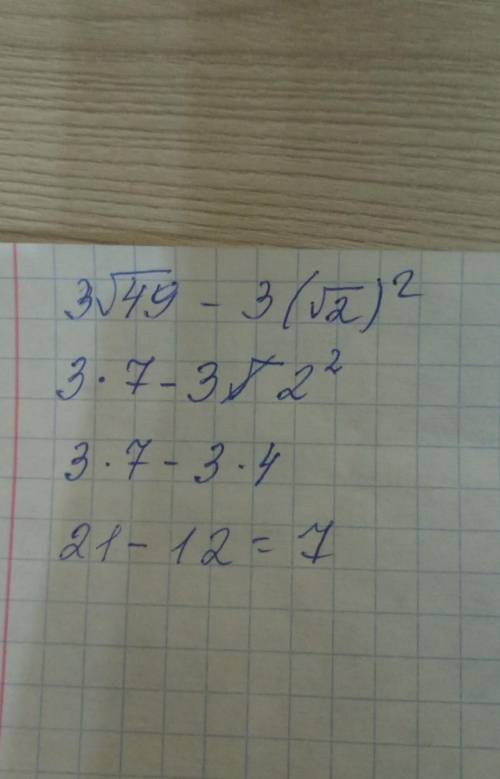 3√49 - 3(√2)²
3·7 - 3√2²
3·7 - 3·4
21 - 12 = 7